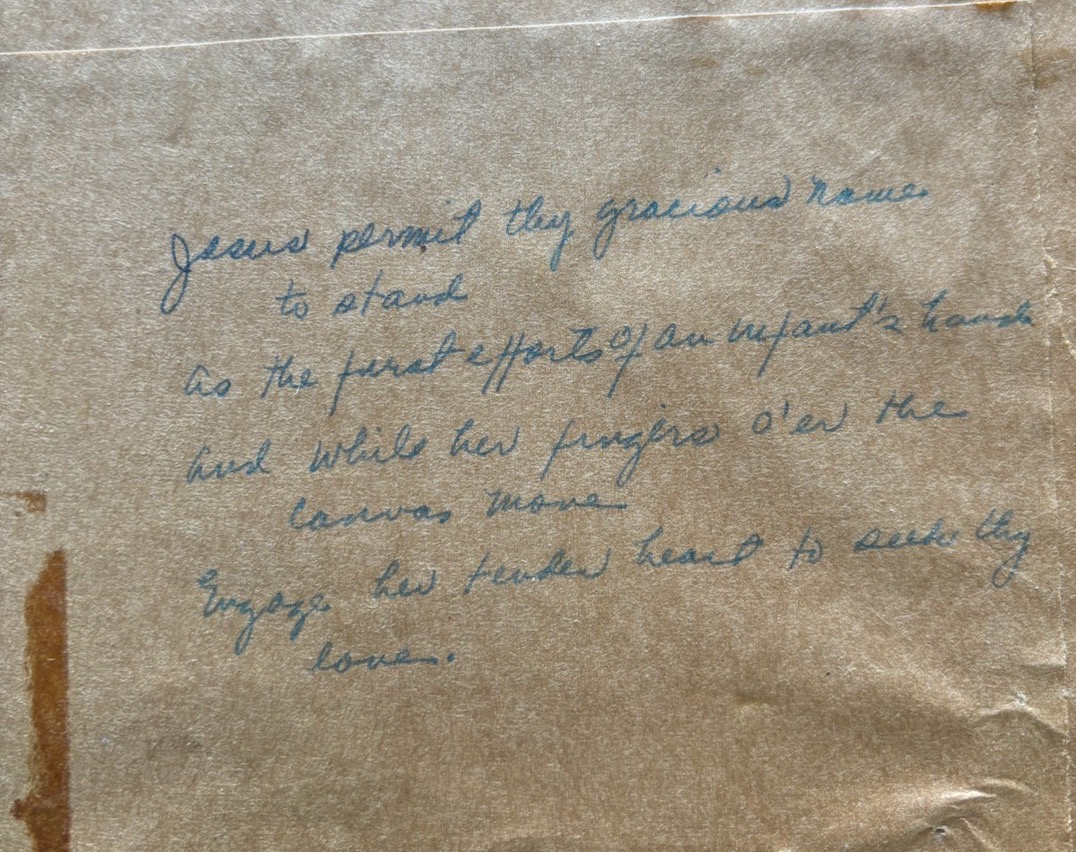 Jesus permit thy gracious name
to stand
As the first efforts of an infant's hand
And while her fingers o'er the
canvas move
Engage her tender heart to seek thy
love.